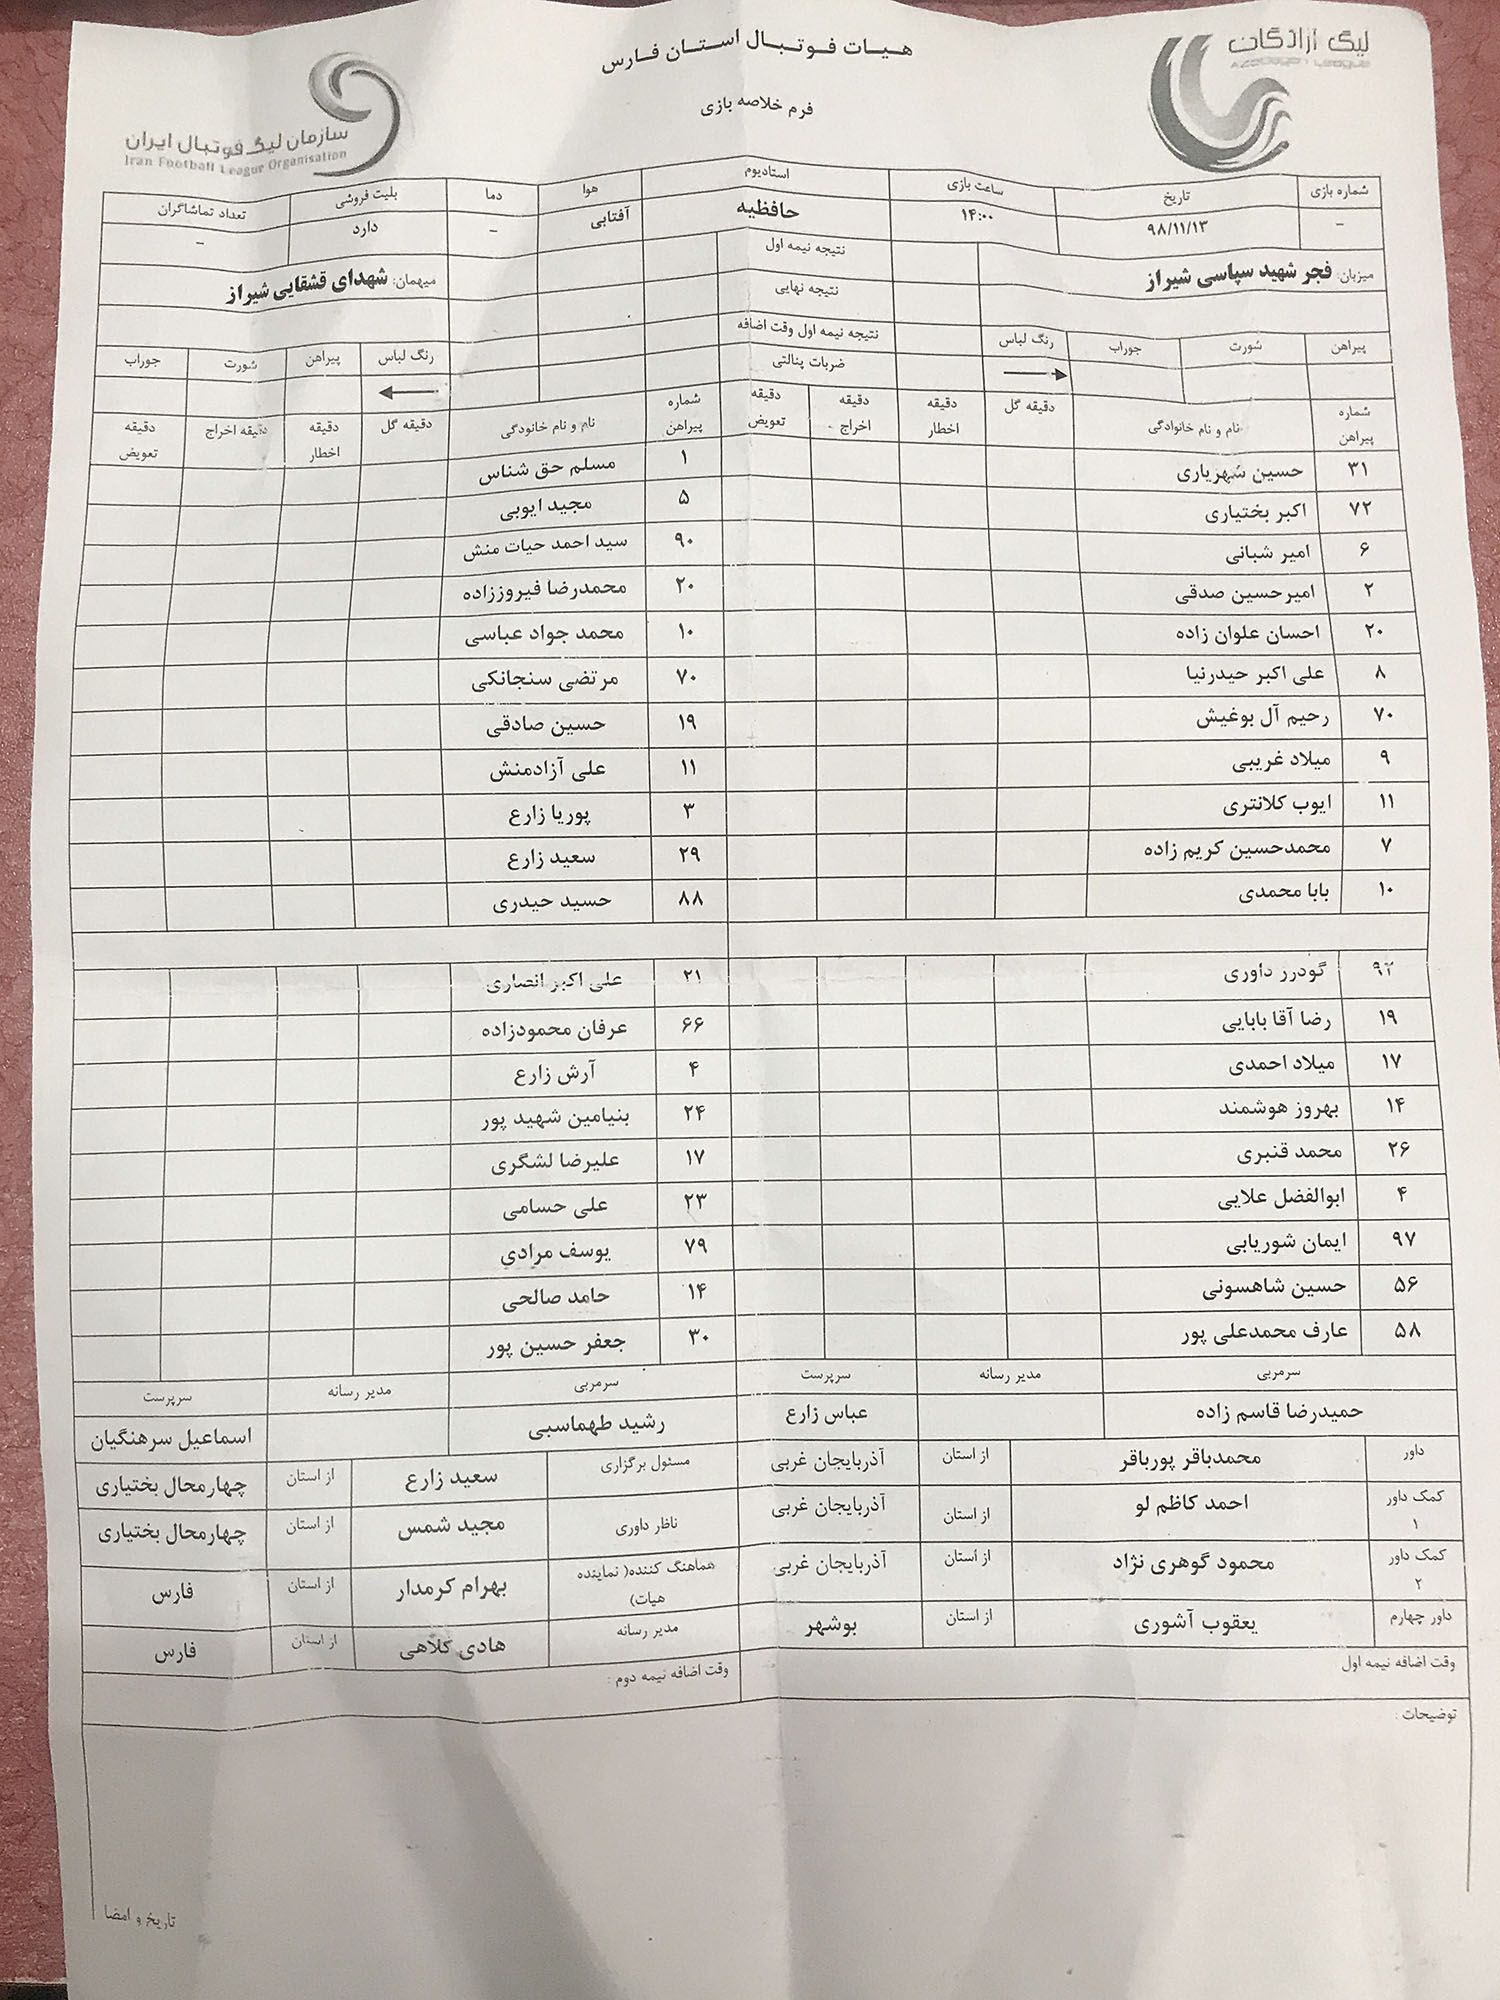 هیات فوتبال استان فارس
لیگ آزادگان
فرم خلاصه بازی
سازمان لیگ فوتبال ایران
Iran Football League Organisation
شماره بازی تاریخ ساعت بازی استادیوم هوا دما بلیت فروشی تعداد تماشاگران
- ۹۸/۱۱/۱۳ ۱۴:۰۰ حافظیه آفتابی - دارد -
میزبان: فجر شهید سپاسی شیراز نتیجه نیمه اول میهمان: شهدای قشقایی شیراز
نتیجه نهایی
پیراهن شورت جوراب رنگ لباس نتیجه نیمه اول وقت اضافه رنگ لباس پیراهن شورت جوراب
ضربات پنالتی
شماره پیراهن نام و نام خانوادگی دقیقه گل دقیقه اخطار دقیقه اخراج دقیقه تعویض شماره پیراهن نام و نام خانودگی دقیقه گل دقیقه اخطار دقیقه اخراج دقیقه تعویض
۳۱ حسین شهریاری ۱ مسلم حق شناس
۷۲ اکبر بختیاری ۵ مجید ایوبی
۶ امیر شبانی ۹۰ سید احمد حیات منش
۲ امیرحسین صدقی ۲۰ محمدرضا فیروززاده
۲۰ احسان علوان زاده ۱۰ محمد جواد عباسی
۸ علی اکبر حیدرنیا ۷۰ مرتضی سنجانکی
۷۰ رحیم آل بوغیش ۱۹ حسین صادقی
۹ میلاد غریبی ۱۱ علی آزادمنش
۱۱ ایوب کلانتری ۳ پوریا زارع
۷ محمدحسین کریم زاده ۲۹ سعید زارع
۱۰ بابا محمدی ۸۸ حسید حیدری
گودرز داوری ۲۱ علی اکبر انصاری
۱۹ رضا آقا بابایی ۶۶ عرفان محمودزاده
۱۷ میلاد احمدی ۴ آرش زارع
۱۴ بهروز هوشمند ۲۴ بنیامین شهید پور
۲۶ محمد قنبری ۱۷ علیرضا لشگری
۴ ابوالفضل علایی ۲۳ علی حسامی
۹۷ ایمان شوریابی ۷۹ یوسف مرادی
۵۶ حسین شاهسونی ۱۴ حامد صالحی
۵۸ عارف محمدعلی پور ۳۰ جعفر حسین پور
سرمربی مدیر رسانه سرپرست سرمربی مدیر رسانه سرپرست
حمیدرضا قاسم زاده عباس زارع رشید طهماسبی اسماعیل سرهنگیان
داور محمدباقر پورباقر از استان آذربایجان غربی مسئول برگزاری سعید زارع از استان چهارمحال بختیاری
کمک داور ۱ احمد کاظم لو از استان آذربایجان غربی ناظر داوری مجید شمس از استان چهارمحال بختیاری
کمک داور ۲ محمود گوهری نژاد از استان آذربایجان غربی هماهنگ کننده( نماینده هیات) بهرام کرمدار از استان فارس
داور چهارم یعقوب آشوری از استان بوشهر مدیر رسانه هادی کلاهی از استان فارس
وقت اضافه نیمه اول وقت اضافه نیمه دوم :
توضیحات :
تاریخ و امضا